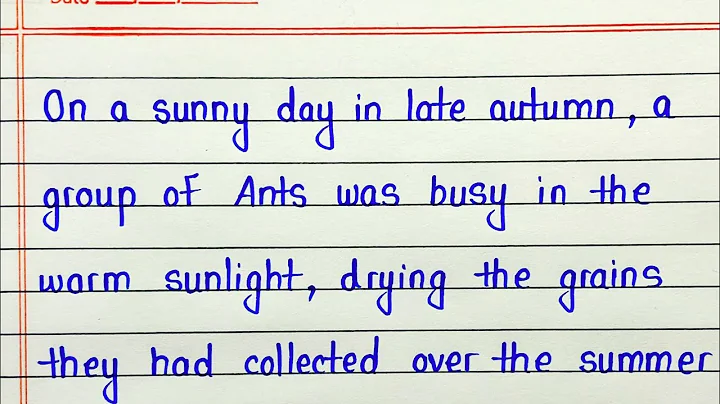 On a sunny day in late autumn, a
group of Ants was busy in the
warm sunlight, drying the grains
they had collected over the summer